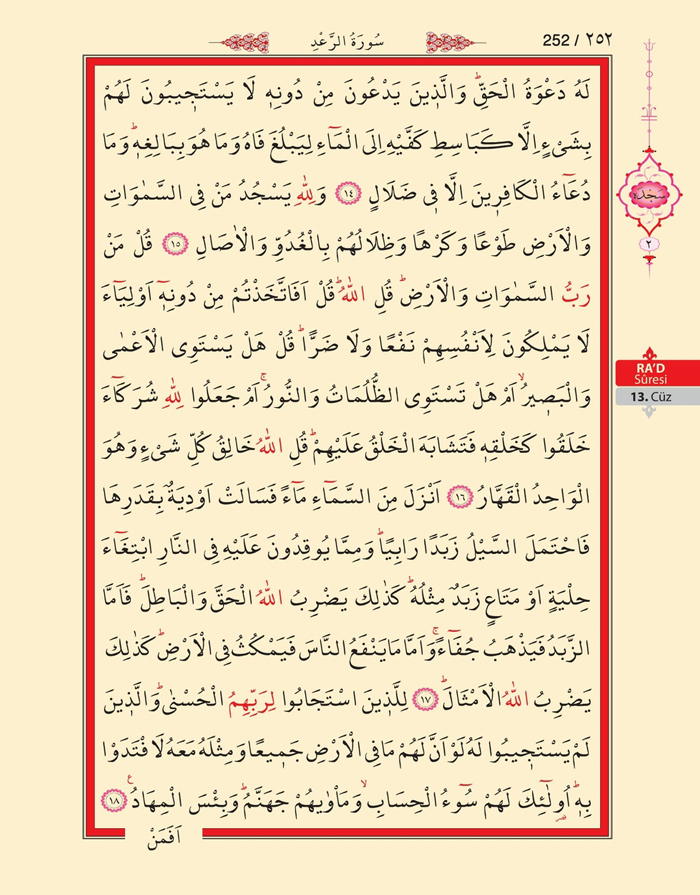 252 / ٢٥٢
سُورَةُ الرَّعْدِ
لَهُ دَعْوَةُ الْحَقِّۜ وَالَّذ۪ينَ يَدْعُونَ مِنْ دُونِه۪ لَا يَسْتَج۪يبُونَ لَهُمْ
بِشَيْءٍ اِلَّا كَبَاسِطِ كَفَّيْهِ اِلَى الْمَٓاءِ لِيَبْلُغَ فَاهُ وَمَا هُوَ بِبَالِغِه۪ۜ وَمَا
دُعَٓاءُ الْكَافِر۪ينَ اِلَّا ف۪ي ضَلَالٍ ﴿١٤﴾ وَلِلّٰهِ يَسْجُدُ مَنْ فِي السَّمٰوَاتِ
وَالْاَرْضِ طَوْعًا وَكَرْهًا وَظِلَالُهُمْ بِالْغُدُوِّ وَالْاٰصَالِ ﴿١٥﴾ قُلْ مَنْ
رَبُّ السَّمٰوَاتِ وَالْاَرْضِۜ قُلِ اللّٰهُۜ قُلْ اَفَاتَّخَذْتُمْ مِنْ دُونِه۪ٓ اَوْلِيَٓاءَ
لَا يَمْلِكُونَ لِاَنْفُسِهِمْ نَفْعًا وَلَا ضَرًّاۜ قُلْ هَلْ يَسْتَوِي الْاَعْمٰى
وَالْبَص۪يرُۙ اَمْ هَلْ تَسْتَوِي الظُّلُمَاتُ وَالنُّورُۚ اَمْ جَعَلُوا لِلّٰهِ شُرَكَٓاءَ
خَلَقُوا كَخَلْقِه۪ فَتَشَابَهَ الْخَلْقُ عَلَيْهِمْۜ قُلِ اللّٰهُ خَالِقُ كُلِّ شَيْءٍ وَهُوَ
الْوَاحِدُ الْقَهَّارُ ﴿١٦﴾ اَنْزَلَ مِنَ السَّمَٓاءِ مَٓاءً فَسَالَتْ اَوْدِيَةٌ بِقَدَرِهَا
فَاحْتَمَلَ السَّيْلُ زَبَدًا رَابِيًاۜ وَمِمَّا يُوقِدُونَ عَلَيْهِ فِي النَّارِ ابْتِغَٓاءَ
حِلْيَةٍ اَوْ مَتَاعٍ زَبَدٌ مِثْلُهُۜ كَذٰلِكَ يَضْرِبُ اللّٰهُ الْحَقَّ وَالْبَاطِلَۜ فَاَمَّا
الزَّبَدُ فَيَذْهَبُ جُفَٓاءًۚ وَاَمَّا مَا يَنْفَعُ النَّاسَ فَيَمْكُثُ فِي الْاَرْضِۜ كَذٰلِكَ
يَضْرِبُ اللّٰهُ الْاَمْثَالَۜ ﴿١٧﴾ لِلَّذ۪ينَ اسْتَجَابُوا لِرَبِّهِمُ الْحُسْنٰىۜ وَالَّذ۪ينَ
لَمْ يَسْتَج۪يبُوا لَهُ لَوْ اَنَّ لَهُمْ مَا فِي الْاَرْضِ جَم۪يعًا وَمِثْلَهُ مَعَهُ لَافْتَدَوْا
بِه۪ۜ اُو۬لٰٓئِكَ لَهُمْ سُٓوءُ الْحِسَابِۙ وَمَأْوٰيهُمْ جَهَنَّمُۜ وَبِئْسَ الْمِهَادُ۟ ﴿١٨﴾
اَفَمَنْ
سجده
٢
RA'D
Sûresi
13. Cüz